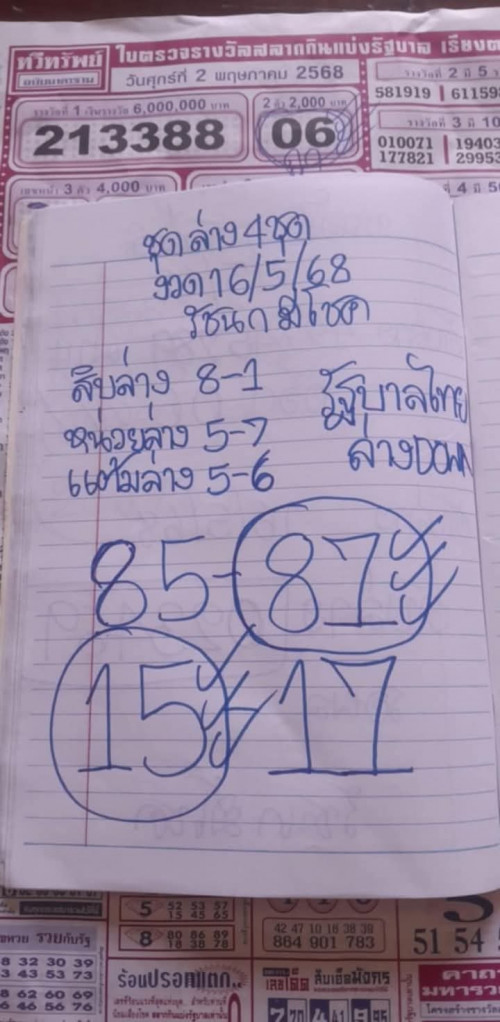 ทวีทรัพย์ ใบตรวจรางวัลสลากกินแบ่งรัฐบาล เรียง
วันศุกร์ที่ 2 พฤษภาคม 2568
รางวัลที่ 1 เงินรางวัล 6,000,000 บาท
213388
2 ตัว 2,000 บาท
06
รางวัลที่ 2 มี 5
581919 61159
รางวัลที่ 3 มี 10
010071 19403
177821 29953
เลขหน้า 3 ตัว 4,000 บาท
ที่ 4 มี 5
ชุดล่าง 4 ชุด
งวด 16/5/68
รัชนก มีโชค
สิบล่าง 8-1
หน่วยล่าง 5-7
แต้มล่าง 5-6
รัฐบาลไทย
ล่าง DOWN
85-87
15-17
รวยกับรัฐ
8 32 30 39
3 43 53 73
8 62 60 69
6 46 56 76
5 52 53 57
15 45 65
8 80 86 89
18 38 78
42 47 10 18 38 39
864 901 783
51 54
ร้อนปรอทแตก
สิบเอ็ดมังกร
770 441 995
คาถา
มหารวย